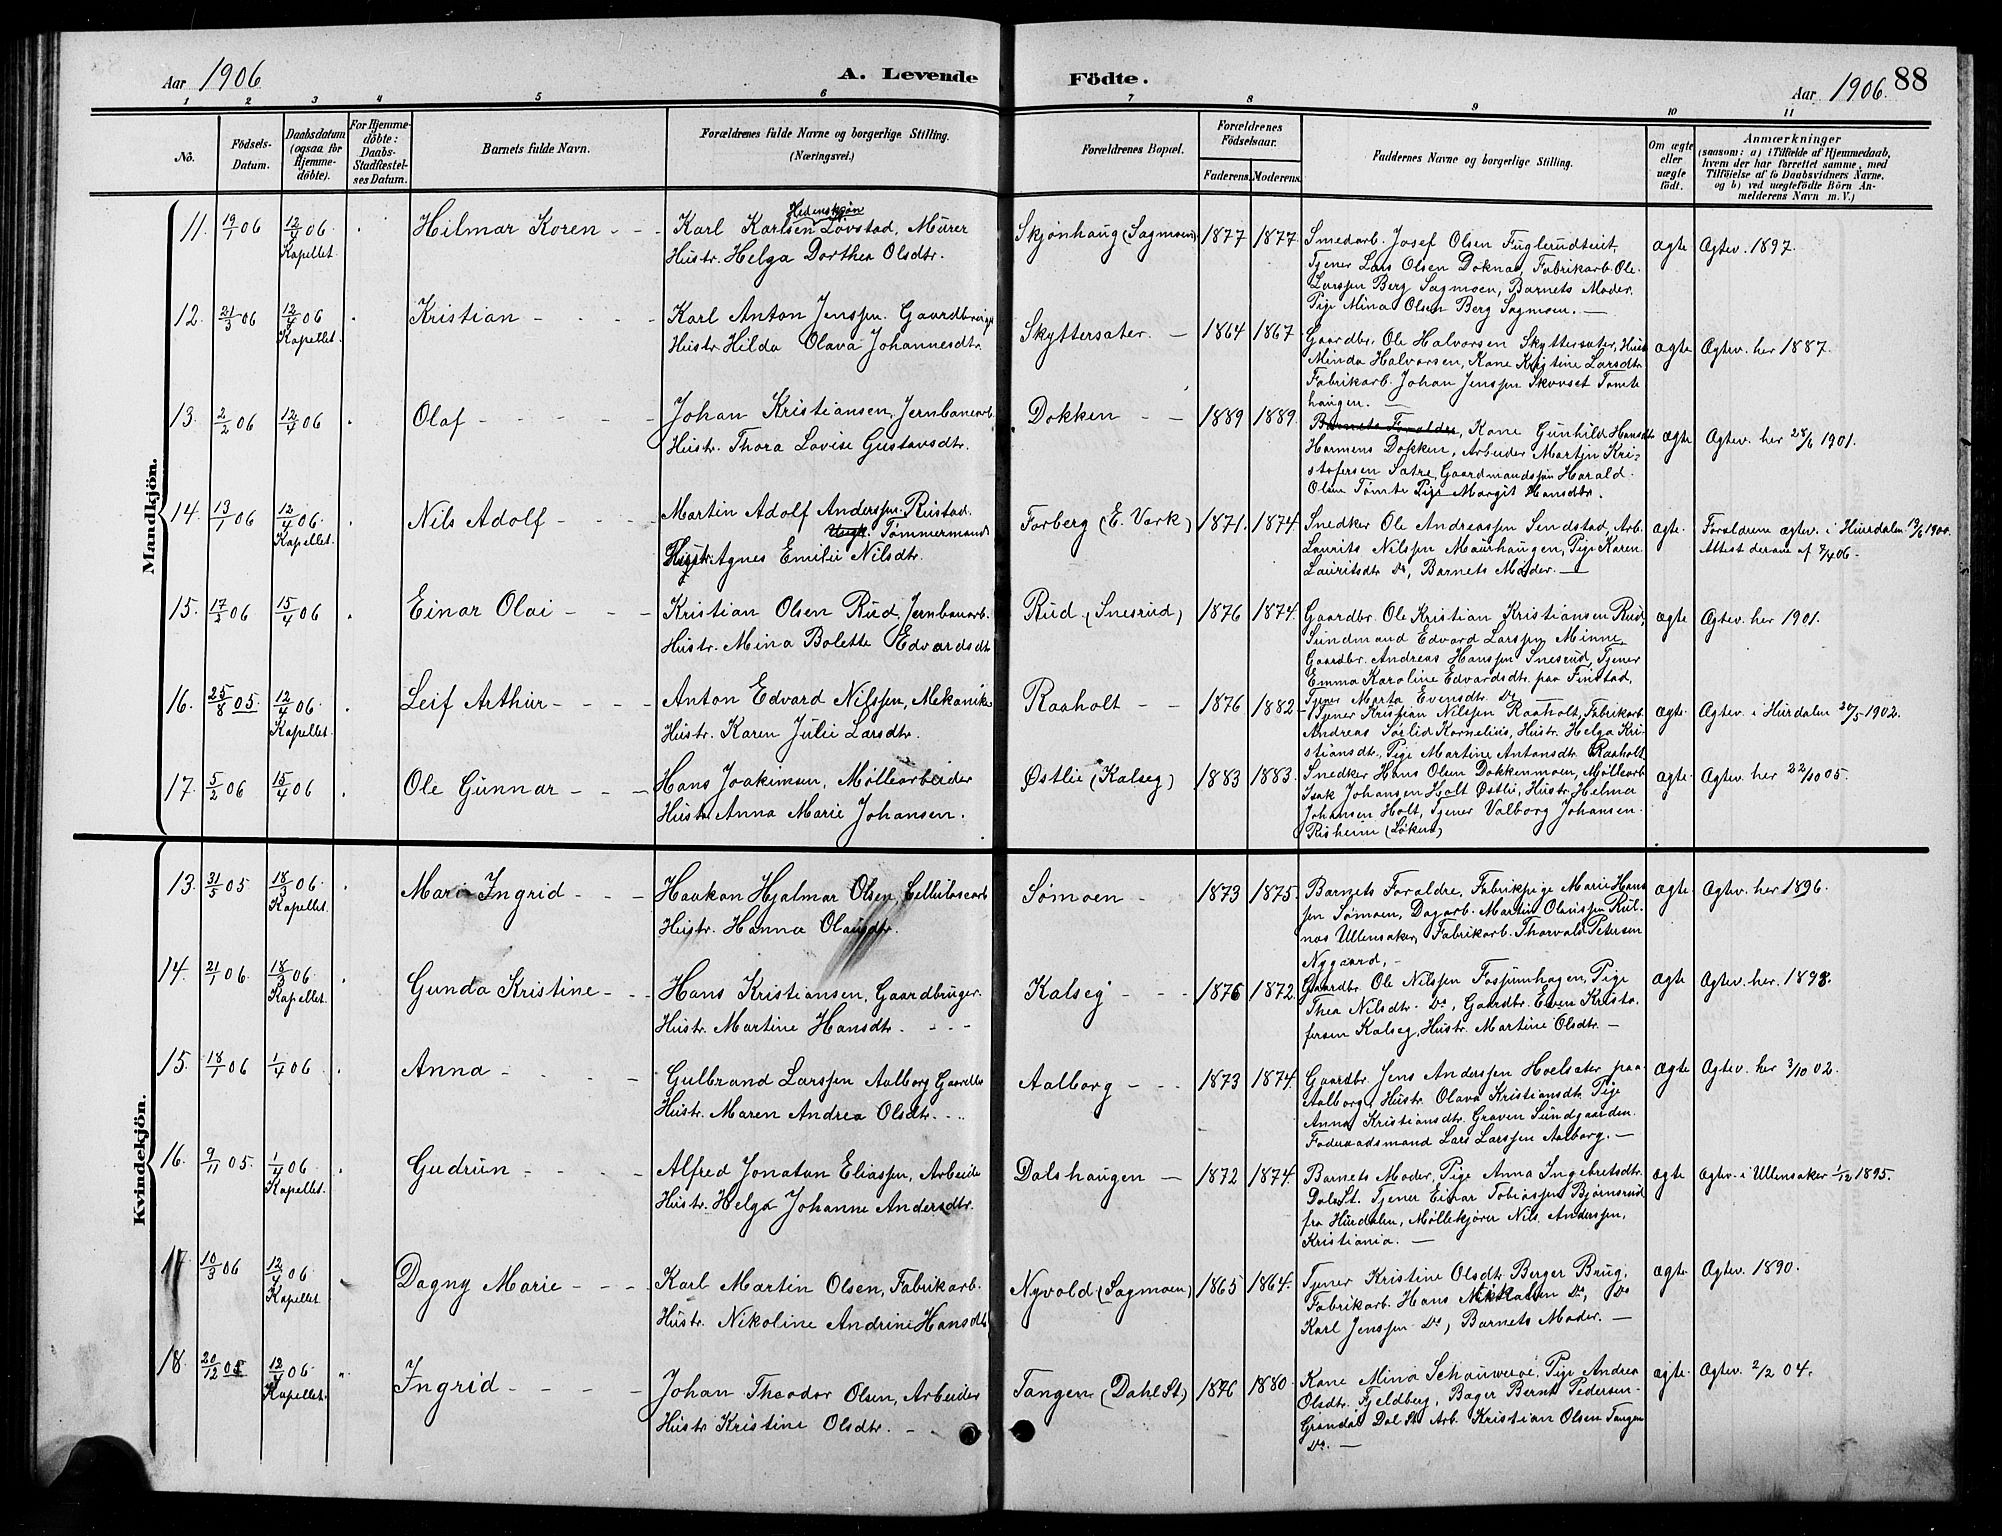 Aar 1906
A. Levende Födte.
Aar 1906. 88
1 2 3 4 5 6 7 8 9 10 11
No.
Födsels-
Datum.
Daabsdatum
(ogsaa för
Hjemme-
döbte).
For Hjemme-
döbte:
Daabs-
Stadfestel-
ses Datum.
Barnets fulde Navn.
Forældrenes fulde Navne og borgerlige Stilling.
(Næringsvei.)
Forældrenes Bopæl.
Forældrenes
Födselsaar.
Faderens. Moderens.
Faddernes Navne og borgerlige Stilling.
Om ægte
eller
uægte
födt.
Anmærkninger
(saasom: a) i Tilfælde af Hjemmedaab,
hvem der har forrettet samme, med
Tilföielse af to Daabsvidners Navne.
og b) ved uægtefödte Börn An-
melderens Navn m. V.)
Mandkjön.
11. 19/1 06 12/4 06 Kapellet. Hilmar Koren
Karl Karlsen Løvstad, Murer
Hustr. Helga Dorthea Olsdtr.
Skjønhaug (Sagmoen) 1877 1877.
Smedarb. Josef Olsen Fuglerudteiet,
Tjener Lars Olsen Doknas, Fabrikarb. Ole
Larssen Berg Sagmoen, Barnets Moder,
Pige Mina Olsen Berg Sagmoen. —
ægte Ægtev. 1897.
12. 21/3 06 12/4 06 Kapellet. Kristian
Karl Anton Jenssen. Gaardbruger
Hustr. Hilda Olava Johannesdtr.
Skyttersæter. — 1864 1867
Gaardbr. Ole Halvorsen Skyttersæter, Hustr
Minda Halvorsen, Kone Kristine Larsdtr
Fabrikarb. Johan Jenssen Skovset Tomte
haugen. —
ægte Ægtev. her 1887.
13. 2/2 06 12/4 06 Olaf
Johan Kristiansen, Jernbanearb.
Hustr. Thora Lovise Gustavsdtr.
Dokken — 1889 1889.
Barnets Forældre, Kone Gunhild Hansdtr
Hormens Dokken, Arbeider Martin Kri-
stofersen Sætre, Gaardmandssøn Harald
Olsen Tømte Pige Margit Hansdtr.
ægte Ægtev. her 28/6 1901.
14. 13/1 06 12/4 06. Kapellet. Nils Adolf
Martin Adolf Anderssen Rustad
Tømmermand
Hustr. Agnes Emilie Nilsdtr.
Forberg (E. Værk) 1871. 1874.
Snedker Ole Andreassen Sendstad, Arb.
Laurits Nilssen Maurhaugen, Pige Karen
Lauritsdtr Do, Barnets Moder. —
ægte. Forældrene ægtev. i Hurdalen 19/6 1900.
Attest derane af 7/4 06.
15. 17/2 06 15/4 06 Einar Olai
Kristian Olsen Rud, Jernbanearb.
Hustr. Mina Bolette Edvardsdtr
Rud. (Snesrud) 1876 1874.
Gaardbr. Ole Kristian Kristiansen Rud,
Sundmand Edvard Larssen Minne
Gaardbr. Andreas Hanssen Snesrud, Tjener
Emma Karoline Edvardsdtr. paa Finstad,
Tjener Marta Evensdtr. Do
ægte Ægtev. her 1901.
16. 25/8 05. 12/4 06 Kapellet. Leif Arthur
Anton Edvard Nilssen, Mekaniker
Hustr. Karen Julie Larsdtr.
Raaholt — 1876 1882
Tjener Kristian Nilssen Raaholt, Fabrikarb
Andreas Sørlid Kornelius, Hustr. Helga Kri-
stiansdtr. Pige Martine Antonsdtr. Raaholt
ægte. Ægtev. i Hurdalen 20/5 1902.
17. 5/2 06 15/4 06 Ole Gunnar
Hans Joakimsen, Møllearbeider
Hustr. Anna Marie Johansen.
Østlie (Kalseg) 1883 1883.
Snedker Hans Olsen Dokkenmoen, Møllearb
Isak Johansen Holt Østli, Hustr. Helma
Johansen Holt, Tjener Valborg Johansen
Risheim (Løken)
ægte. Ægtev. her 22/10 05.
Kvindekjön.
13. 31/5 05 18/3 06. Kapellet. Mari Ingrid
Haakon Hjalmar Olsen, Cellulosearb
Hustr. Hanna Olausdtr.
Sømoen 1873 1875.
Barnets Forældre, Fabrikpige Marie Hans
sen Sømoen, Dagarb. Martin Olaussen Rul-
nas Ullensaker, Fabrikarb. Thorvald Petersen
Nygaard,
ægte Ægtev. her 1896.
14. 21/1 06. 18/3 06. Kapellet. Gunda Kristine
Hans Kristiansen, Gaardbruger.
Hustr. Martine Hansdtr.
Kalseg 1876 1872
Gaardbr. Ole Nilssen Fossumhagen, Pige
Thea Nilsdtr. Do, Gaardbr. Even Kristo-
fersen Kalseg, Hustr. Martine Olsdtr. —
ægte Ægtev. her. 1898.
15. 18/1 06 1/4 06. Anna
Gulbrand Larssen Aalborg Gaardbr
Hustr. Maren Andrea Olsdtr.
Aalborg 1873 1874.
Gaardbr. Jens Anderssen Hoelsæter paa
Aalborg, Hustr. Olava Kristiansdtr. Pige
Anna Kristiansdtr. Graven Sundgaarden.
Føderaadsmand Lars Larssen Aalborg. —
ægte Ægtev. her 3/10 02.
16. 9/11 05. 1/4 06 Kapellet. Gudrun
Alfred Jonatan Eliassen, Arbeider
Hustr. Helga Johanne Andersdtr.
Dalshaugen — 1872 1874.
Barnets Moder, Pige Anna Ingebretsdtr.
Dal St. Tjener Einar Tobiassen Bjørnsrud
fra Hurdalen, Møllekjører Nils Anderssen,
Kristiania. —
ægte Ægtev. i Ullensaker 1/12 1895.
17 10/3 06 12/4 06. Kapellet. Dagny Marie
Karl Martin Olsen, Fabrikarb.
Hustr. Nikoline Andrine Hansdtr
Nyvold (Sagmoen) 1865 1864.
Tjener Kristine Olsdtr. Berger Brug,
Fabrikarb. Hans Do, Do
Karl Jenssen Do, Barnets Moder. —
ægte Ægtev. 1890.
18. 20/12 05 12/4 06. Kapellet. Ingrid
Johan Theodor Olsen, Arbeider
Hustr. Kristine Olsdtr.
Tangen (Dahl St) 1876 1880.
Kone Mina Schauweroe, Pige Andrea
Olsdtr. Fjeldberg, Bager Bernt Pedersen
Grandal Dal St. Arb. Kristian Olsen Tangen
Do. —
ægte. Ægtev. 2/2 04.